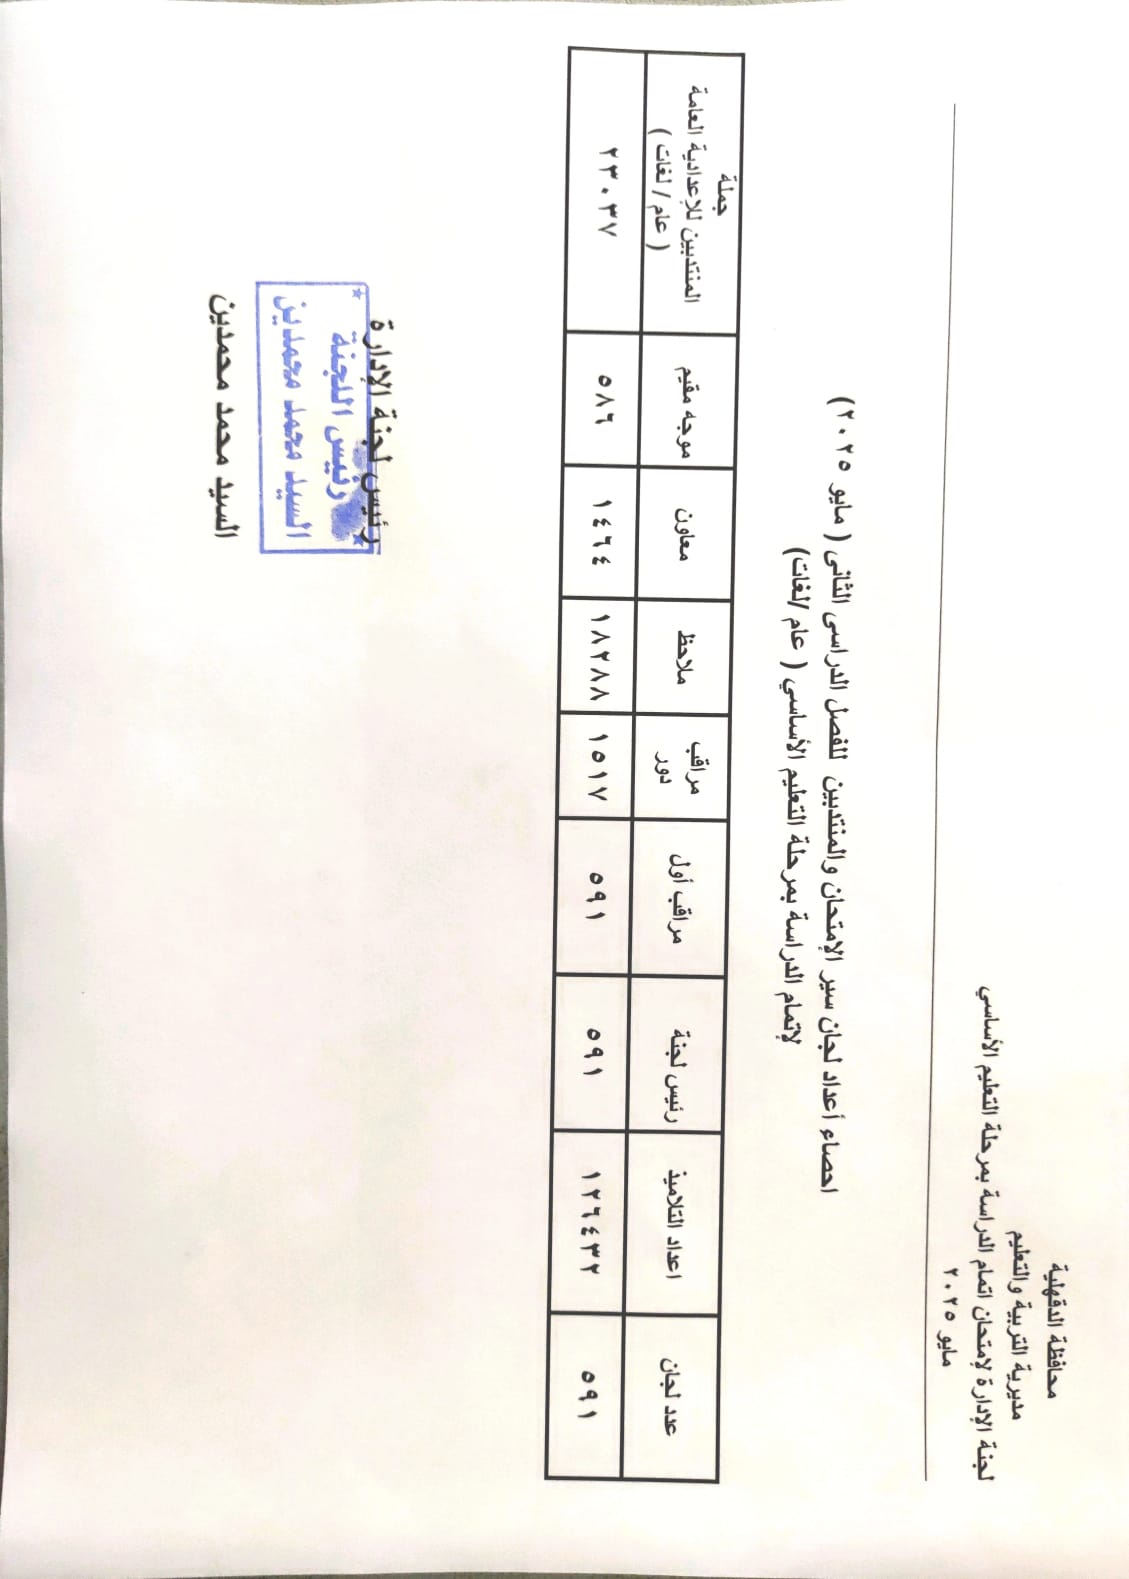 محافظة الدقهلية
مديرية التربية والتعليم
لجنة الإدارة لإمتحان اتمام الدراسة بمرحلة التعليم الأساسي
مايو ٢٠٢٥
احصاء أعداد لجان سير الإمتحان والمنتدبين للفصل الدراسى الثانى ( مايو ٢٠٢٥)
لإتمام الدراسة بمرحلة التعليم الأساسي ( عام /لغات)
عدد لجان
اعداد التلاميذ
رئيس لجنة
مراقب أول
مراقب
دور
ملاحظ
معاون
موجه مقيم
جملة
المنتدبين للإعدادية العامة
( عام / لغات )
٥٩١
١٢٦٤٣٢
٥٩١
٥٩١
١٥١٧
١٨٢٨٨
١٤٦٤
٥٨٦
٢٣٠٣٧
رئيس لجنة الإدارة
رئيس اللجنة
السيد محمد محمدين
السيد محمد محمدين